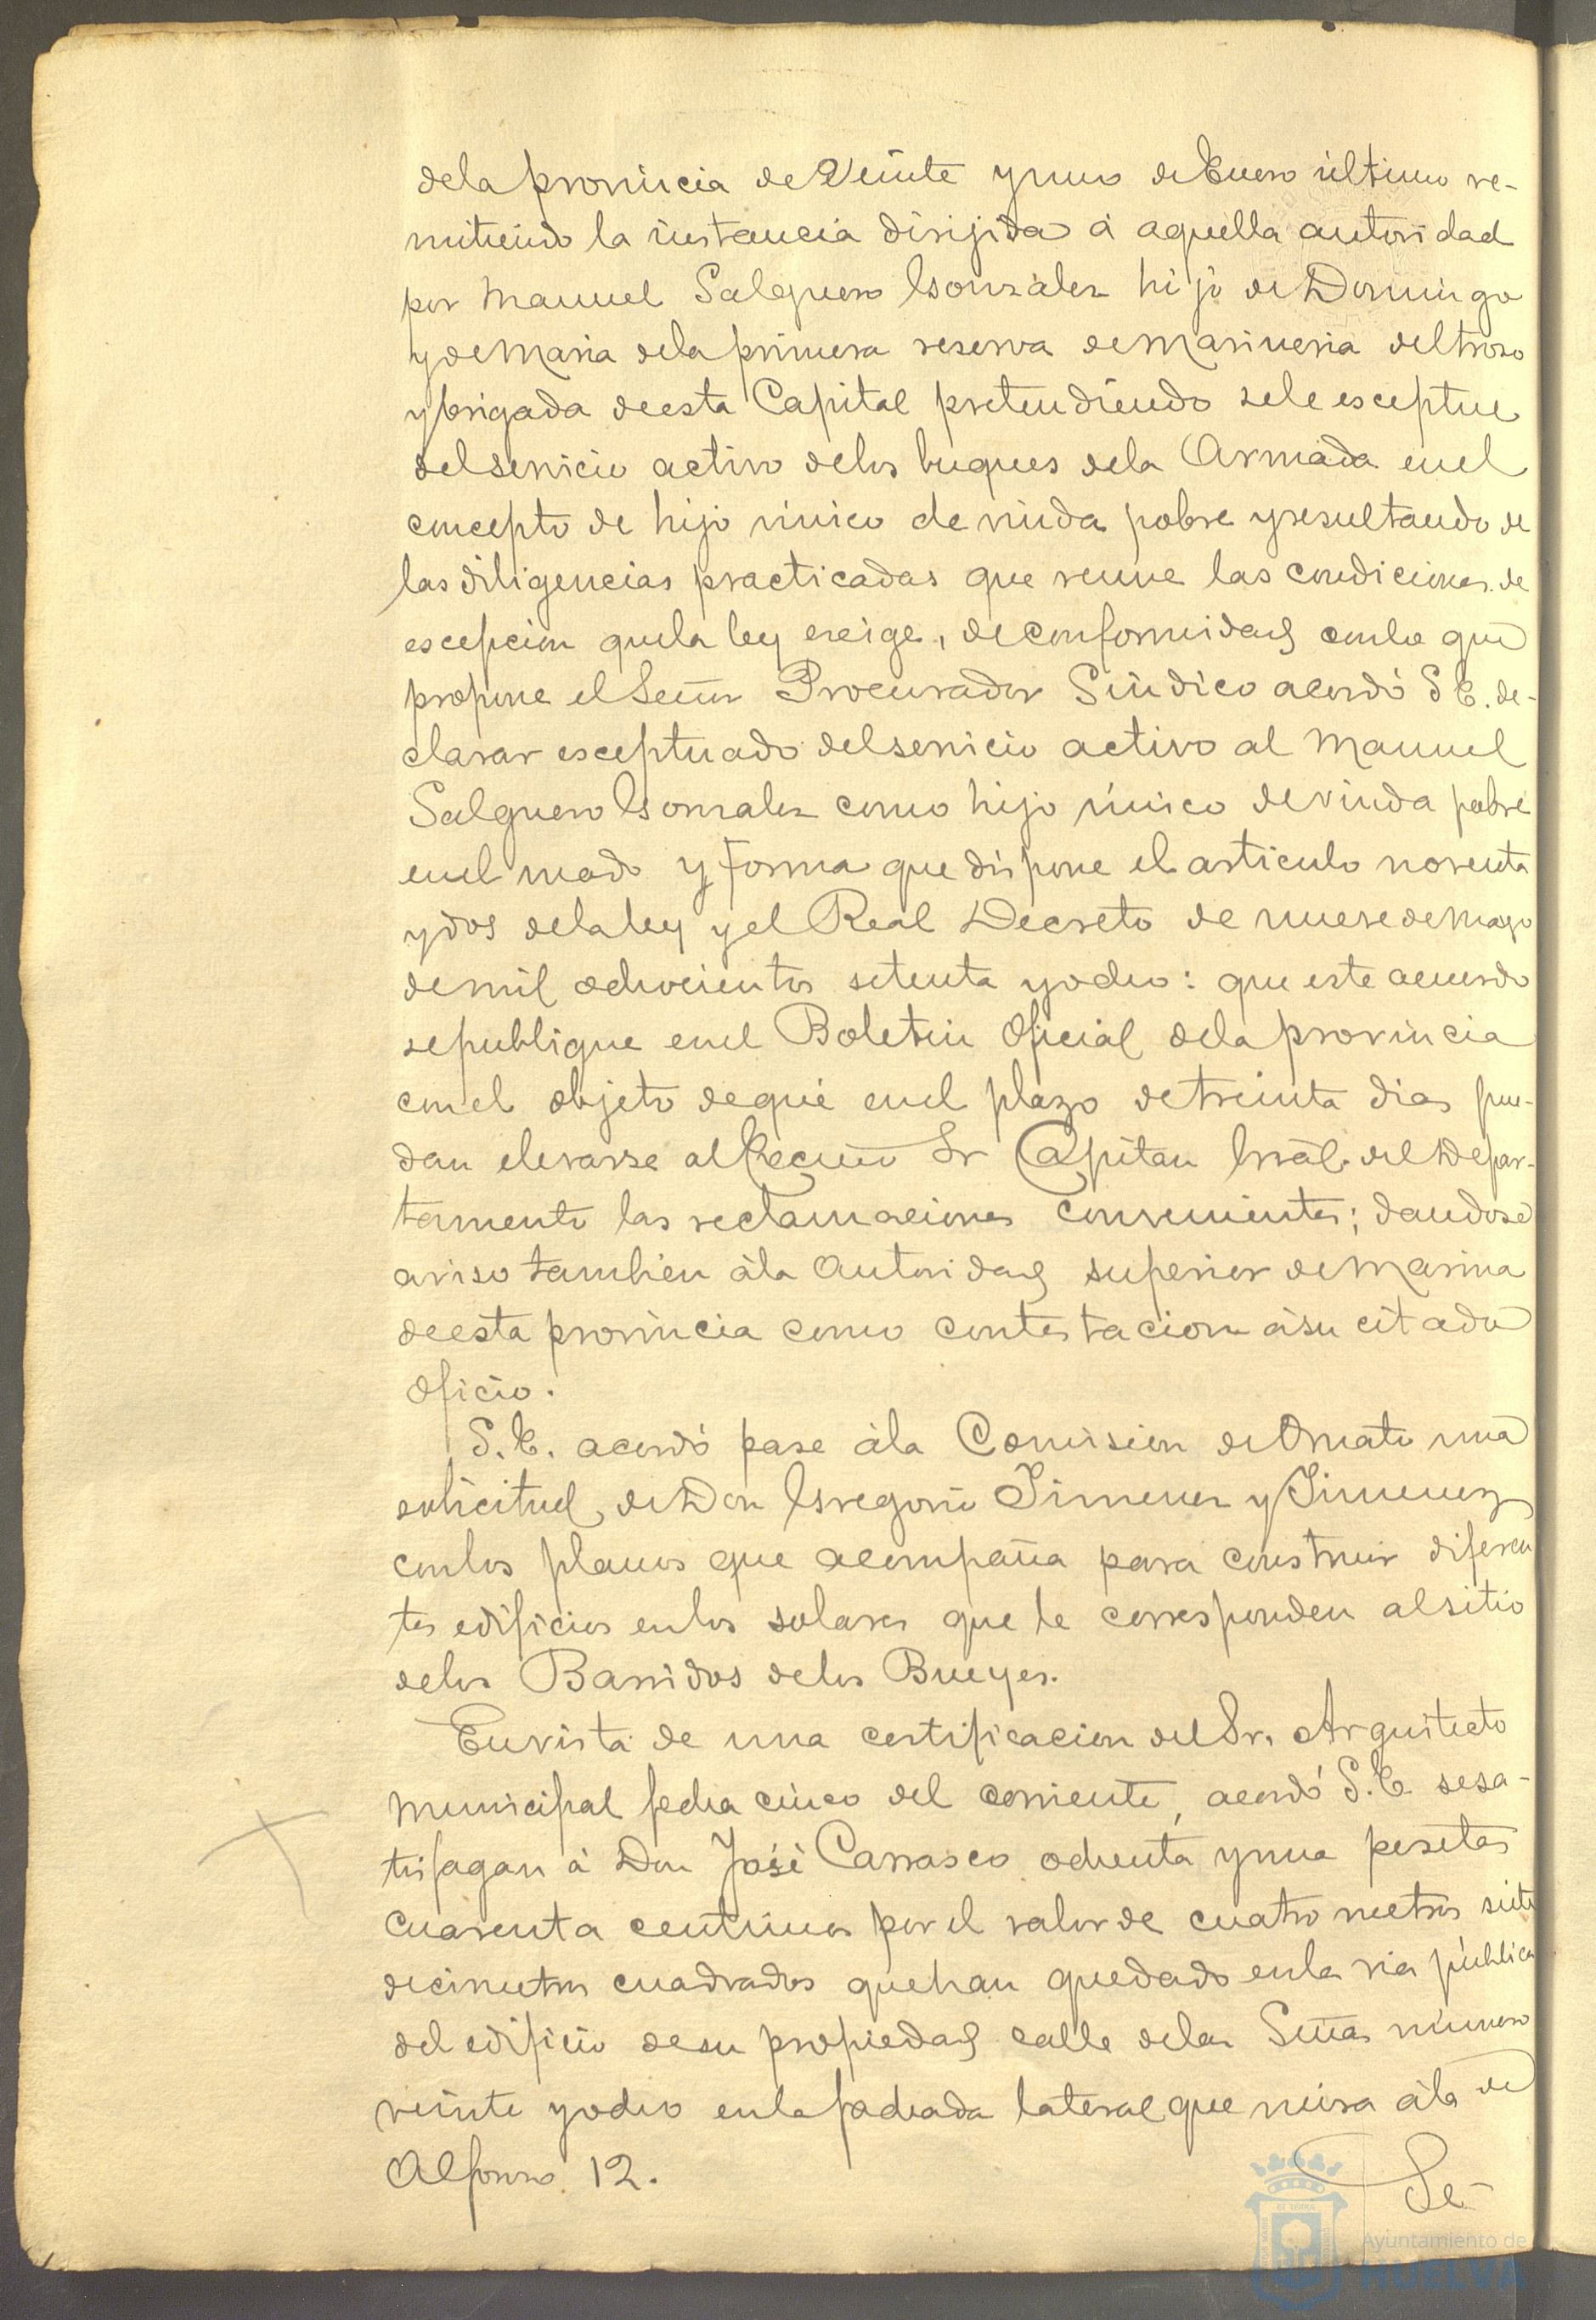 dela provincia de Veinte y uno de Enero último re-
mitiendo la instancia dirijida á aquella autoridad
por Manuel Salguero Gonzalez hijo de Domingo
y de Maria dela primera reserva de marineria del trozo
y brigada de esta Capital pretendiendo se le esceptue
del servicio activo delos buques dela Armada en el
concepto de hijo único de viuda pobre y resultando de
las diligencias practicadas que reune las condiciones de
escepcion que la ley exige, de conformidad con lo que
propone el Señor Procurador Sindico acordó S. E. de-
clarar esceptuado del servicio activo al Manuel
Salguero Gonzalez como hijo único de viuda pobre
en el modo y forma que dispone el articulo noventa
y dos dela ley y el Real Decreto de nueve de Mayo
de mil ochocientos setenta y ocho: que este acuerdo
se publique en el Boletin Oficial dela provincia
con el objeto de que en el plazo de treinta dias pue-
dan elevarse al Excmo Sr Capitan Gral. del Depar-
tamento las reclamaciones convenientes; dandose
aviso tambien á la Autoridad superior de Marina
de esta provincia como contestacion á su citado
oficio.
S. E. acordó pase á la Comision de Ornato una
solicitud de Don Gregorio Jimenez y Jimenez
con los planos que acompaña para construir diferen
tes edificios en los solares que le corresponden al sitio
delos Barridos delos Bueyes.
En vista de una certificacion del Sr. Arquitecto
Municipal fecha cinco del corriente, acordó S. E. se sa-
tisfagan á Don José Carrasco ochenta y una pesetas
cuarenta centimos por el valor de cuatro metros siete
decimetros cuadrados que han quedado en la via pública
del edificio de su propiedad calle delas Señas número
veinte y ocho en la fachada lateral que mira á la de
Alfonso 12.
Se-
Ayuntamiento de
HUELVA